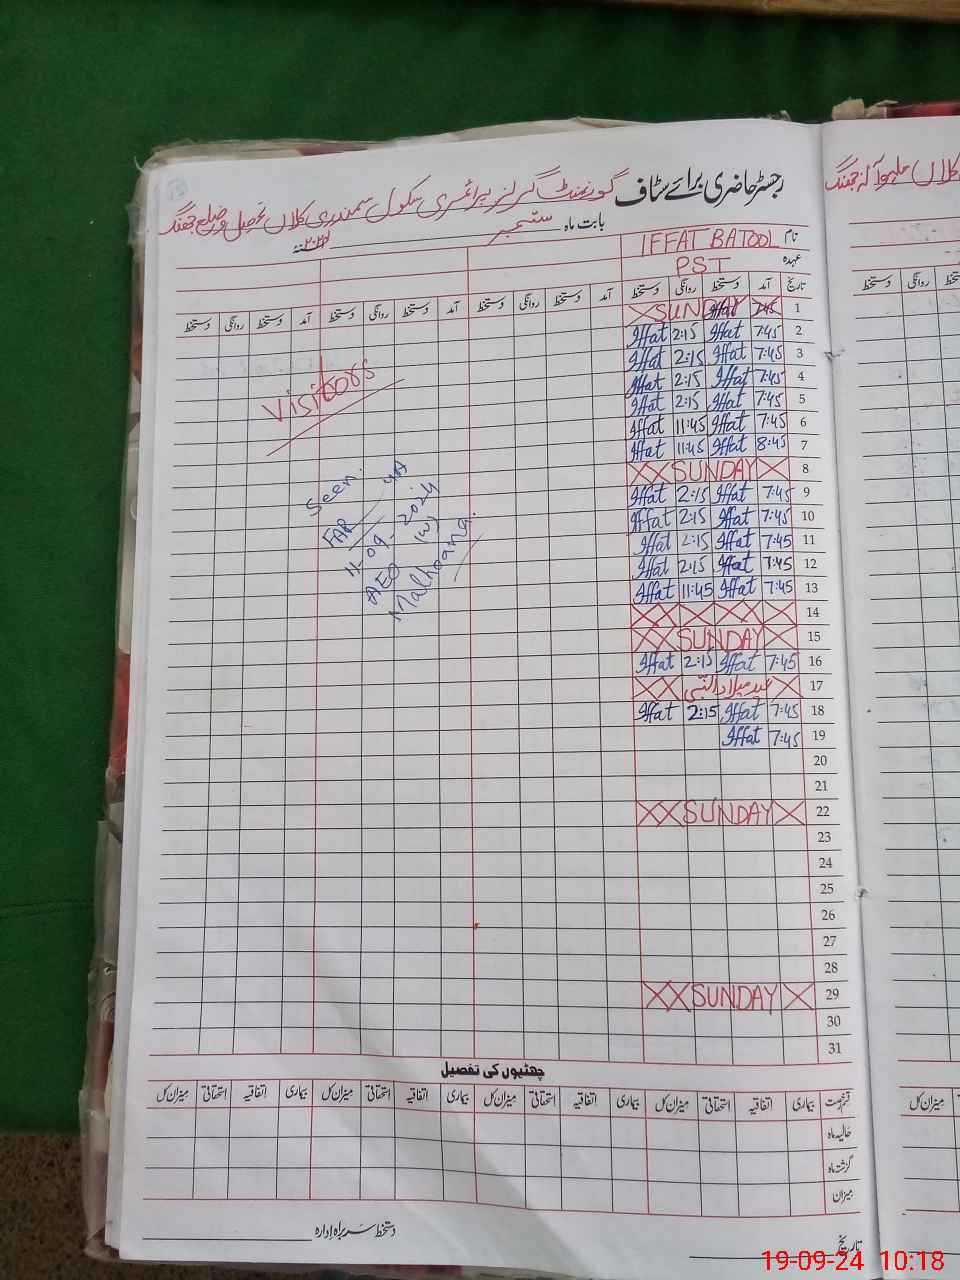 رجسٹر حاضری برائے سٹاف گورنمنٹ گرلز پرائمری سکول سمندری کلاں تحصیل و ضلع جھنگ
بابت ماہ ستمبر
نام IFFAT BATOOL
عہدہ PST
تاریخ آمد دستخط روانگی دستخط آمد دستخط روانگی دستخط آمد دستخط روانگی دستخط آمد دستخط روانگی دستخط
1 7:45 Iffat SUNDAY
2 7:45 Iffat 2:15 Iffat
3 7:45 Iffat 2:15 Iffat
4 7:45 Iffat 2:15 Iffat
5 7:45 Iffat 2:15 Iffat
6 7:45 Iffat 11:45 Iffat
7 8:45 Iffat 11:45 Iffat
8 SUNDAY
9 7:45 Iffat 2:15 Iffat
10 7:45 Iffat 2:15 Iffat
11 7:45 Iffat 2:15 Iffat
12 7:45 Iffat 2:15 Iffat
13 7:45 Iffat 11:45 Iffat
14
15 SUNDAY
16 7:45 Iffat 2:15 Iffat
17 عید میلاد النبی
18 7:45 Iffat 2:15 Iffat
19 7:45 Iffat
20
21
22 SUNDAY
23
24
25
26
27
28
29 SUNDAY
30
31
Visitors
Seen.
11-09-2024
AEO (W)
Malhoana.
چھٹیوں کی تفصیل
قسم رخصت بیماری اتفاقیہ استحقاقی میزان کل بیماری اتفاقیہ استحقاقی میزان کل بیماری اتفاقیہ استحقاقی میزان کل بیماری اتفاقیہ استحقاقی میزان کل
حالیہ ماہ
گزشتہ ماہ
میزان
تاریخ دستخط سربراہ ادارہ
میزان کل
دستخط روانگی
19-09-24 10:18